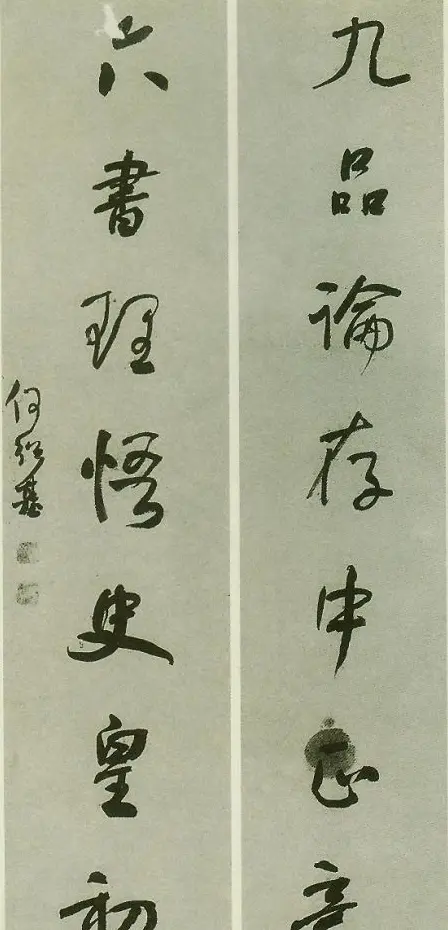 九品論存中正
六書理悟史皇初
何紹基